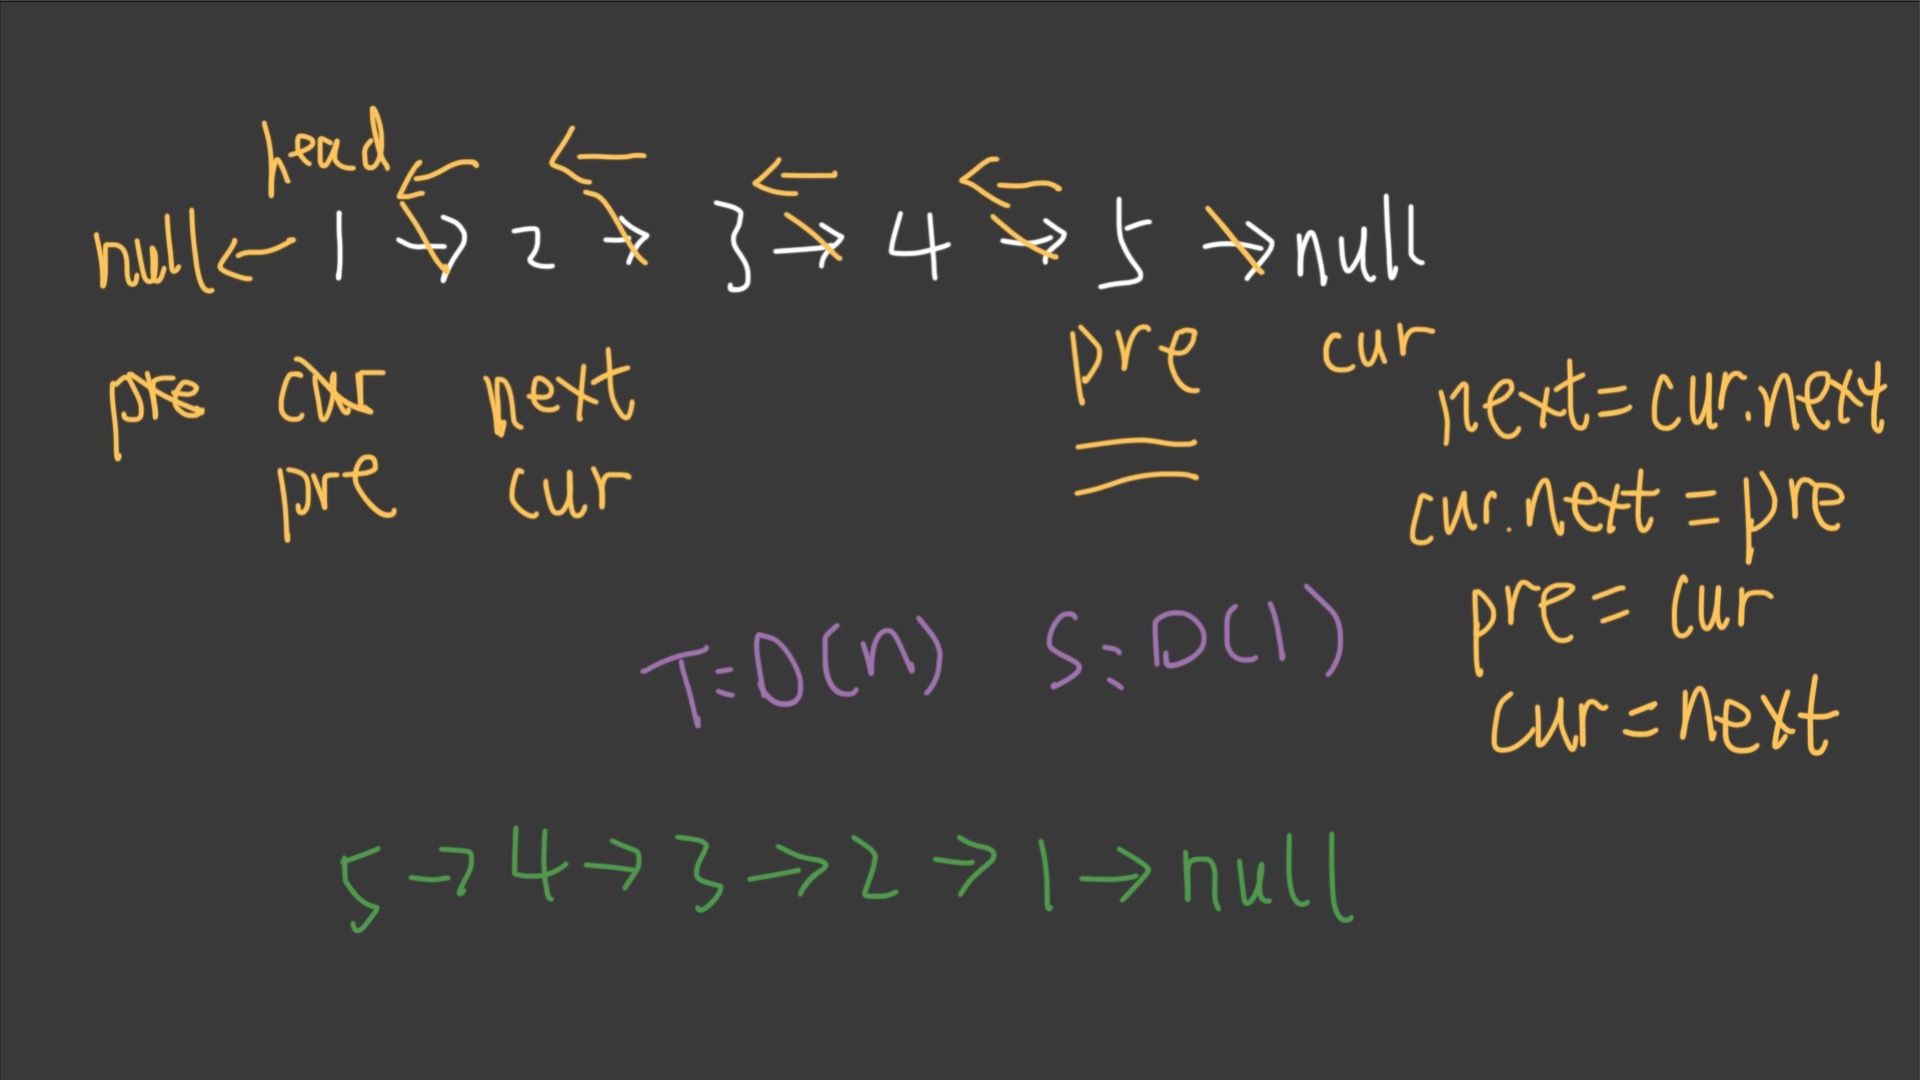 head
null ← 1 → 2 → 3 → 4 → 5 → null
pre cur next
pre cur
pre cur
next=cur.next
cur.next = pre
pre = cur
cur = next
T=O(n) S:O(1)
5 → 4 → 3 → 2 → 1 → null